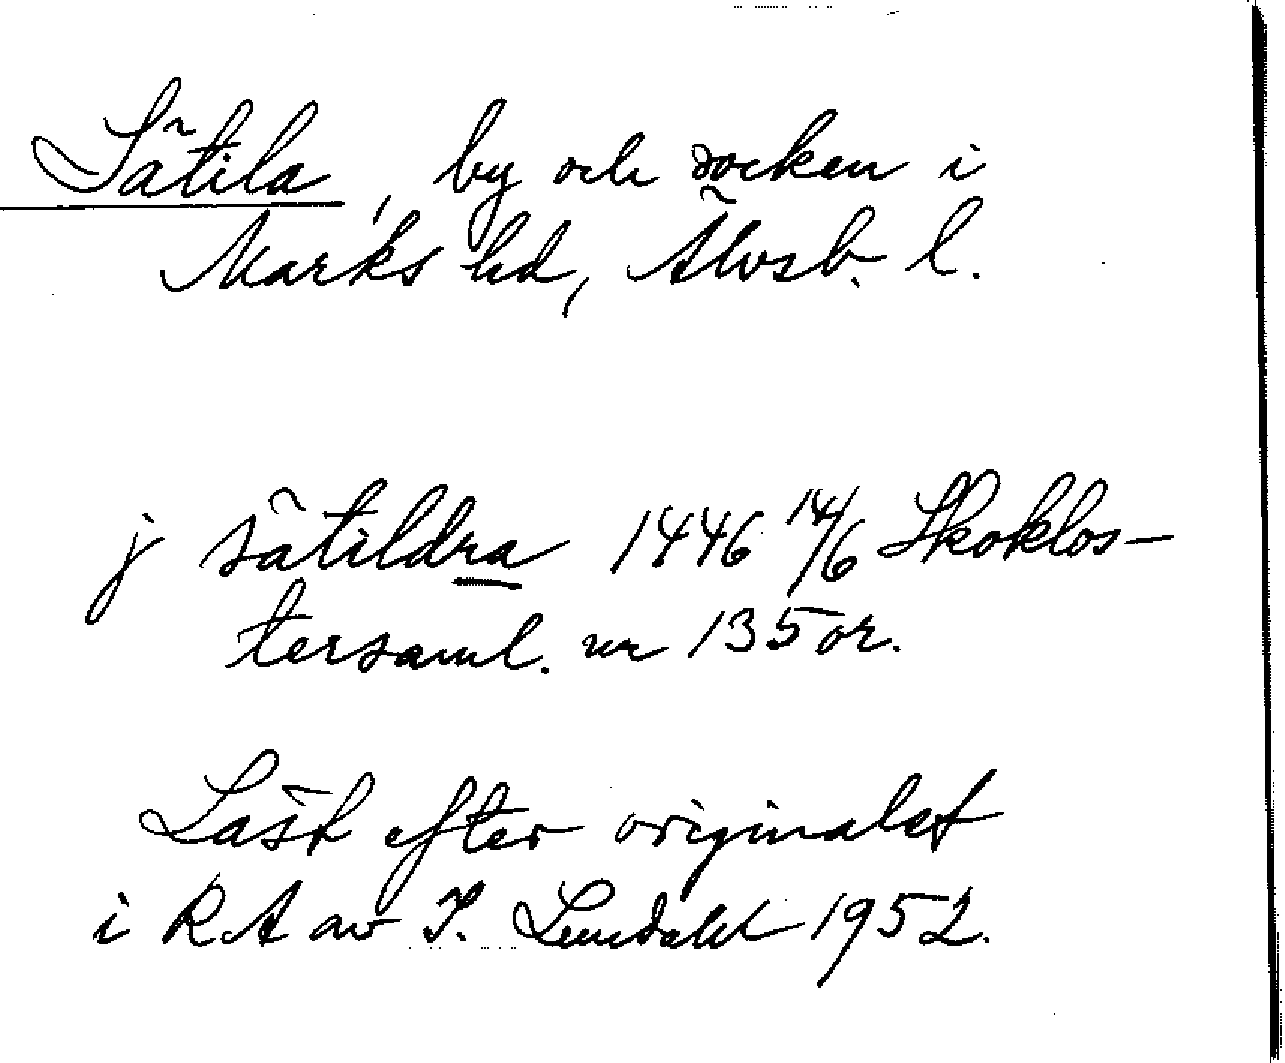 Sätila, by och socken i
Marks hd, Älvsb. l.
j sätildra 1446 14/6 Skoklos-
tersaml. nr 135 or.
Läst efter originalet
i RA av I. Lundahl 1952.